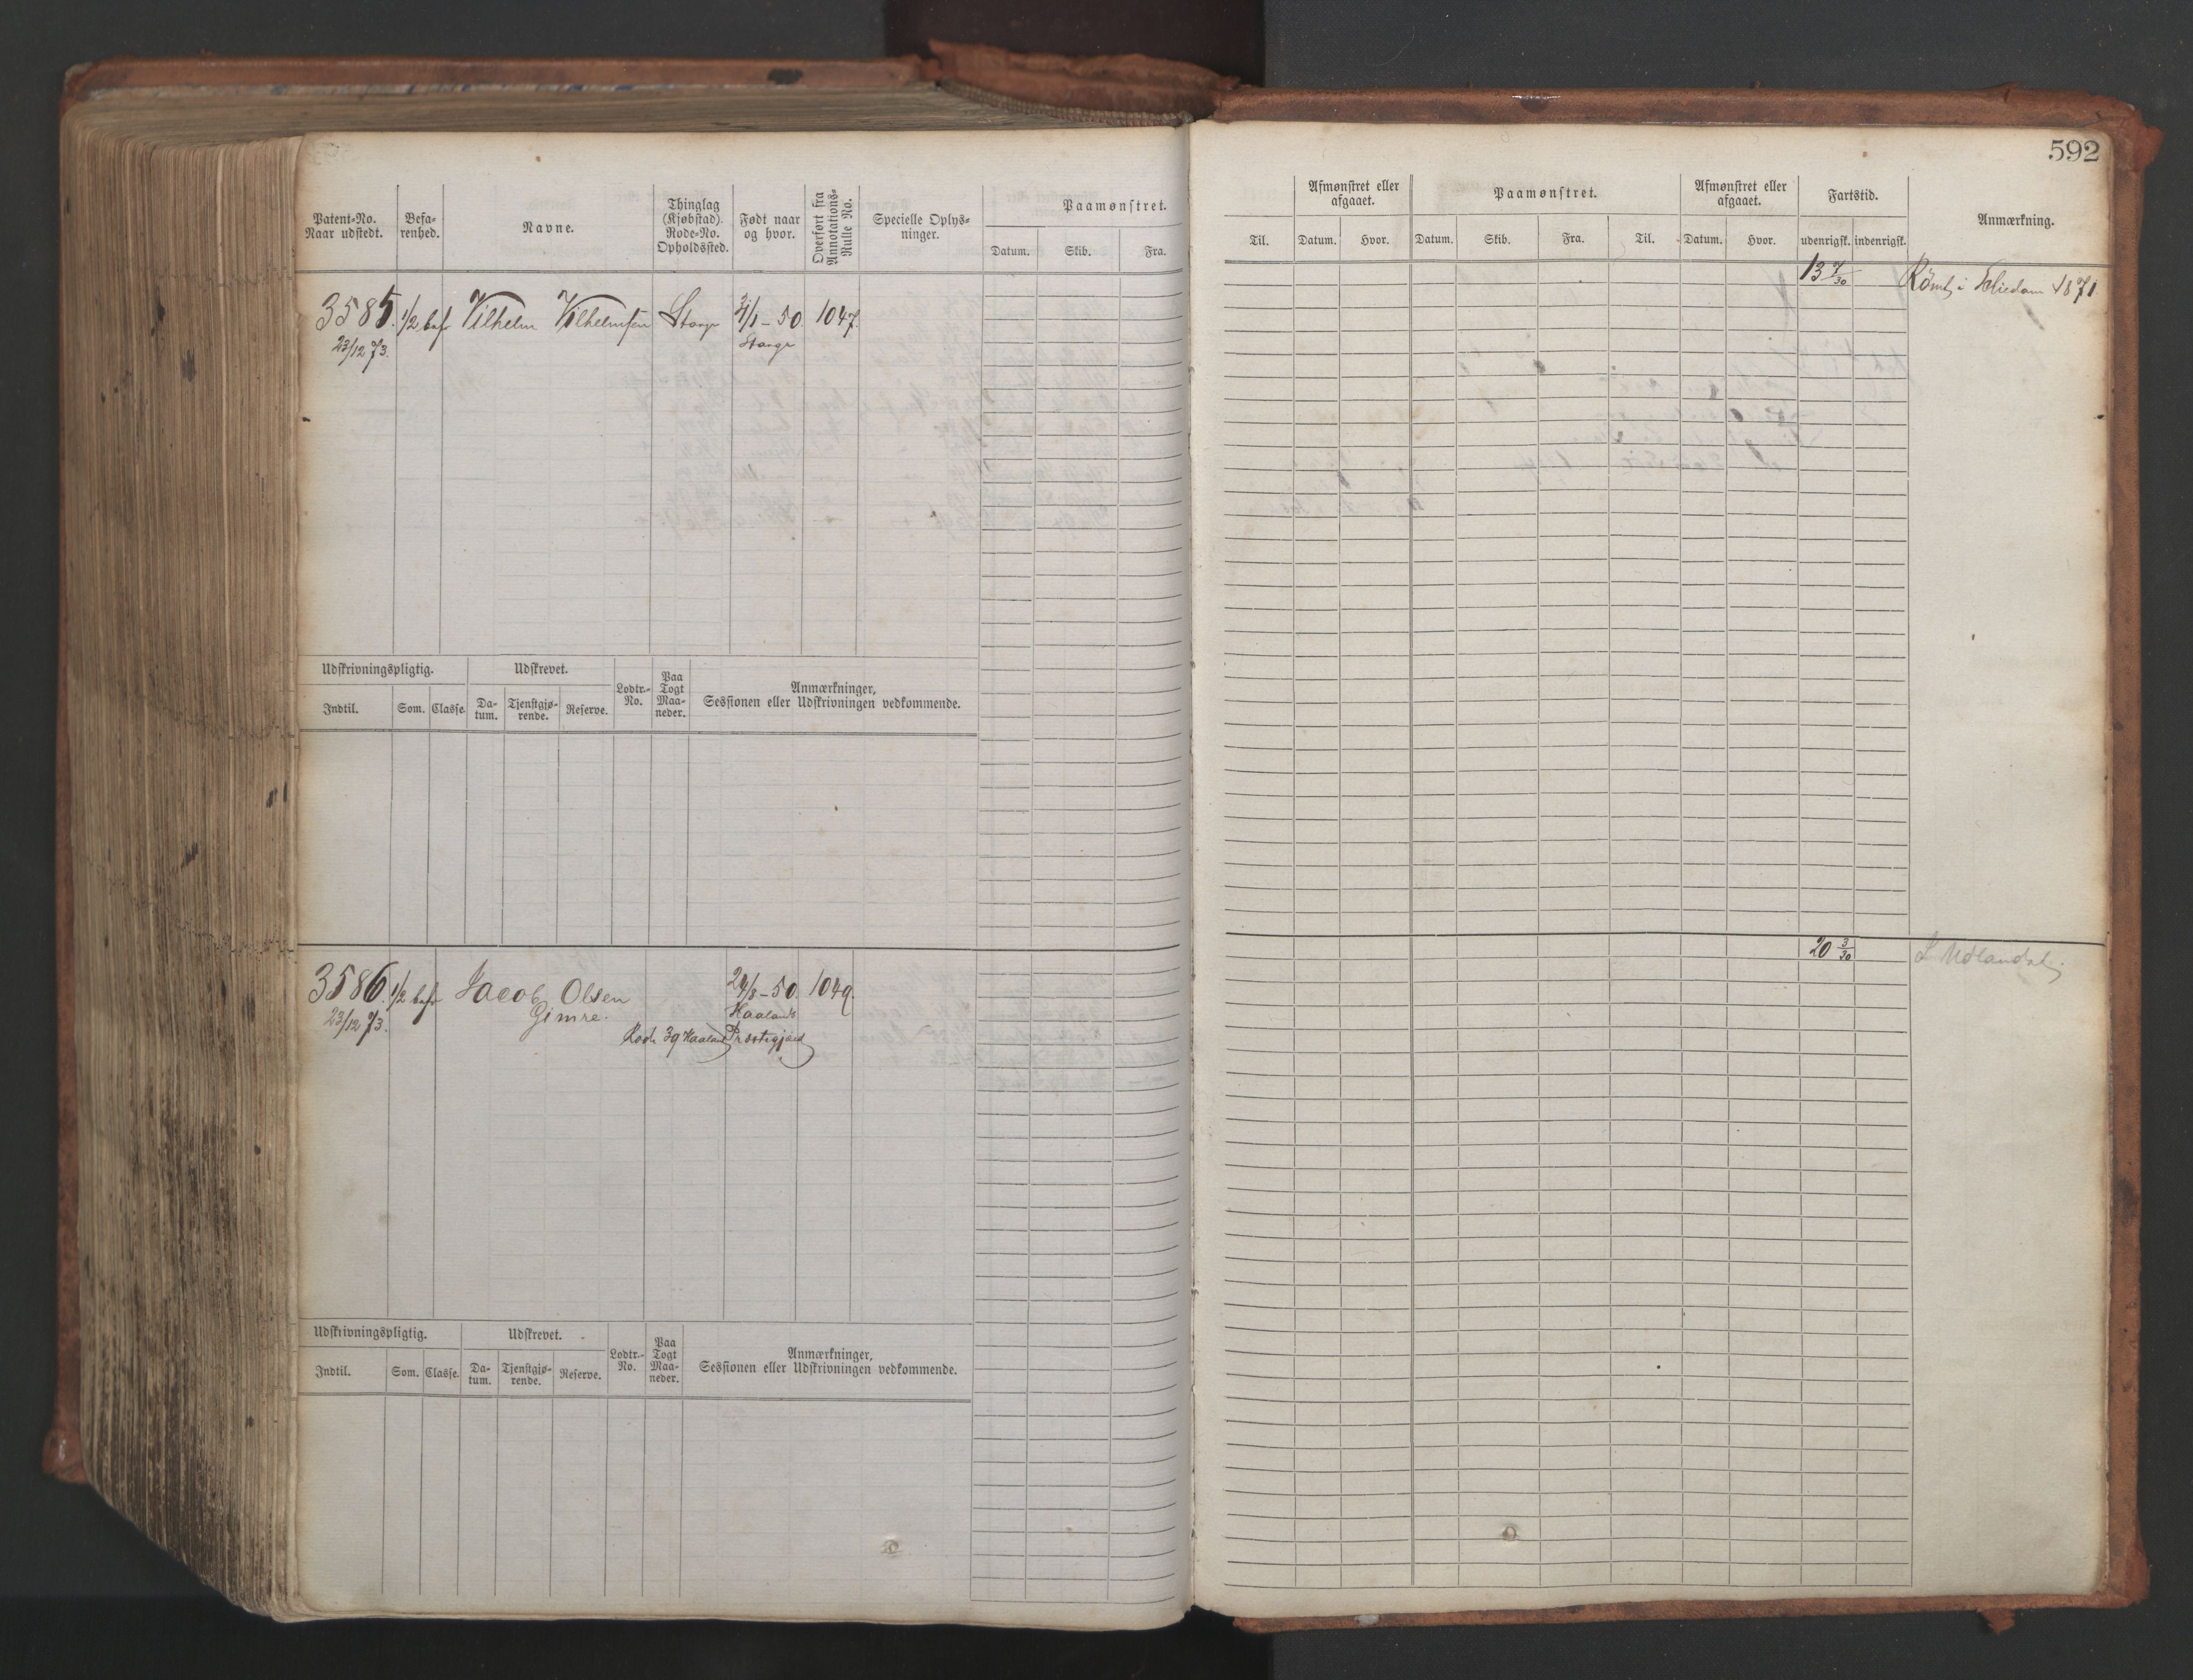 592
Patent-No. Naar udstedt.
Befarenhed.
Navne.
Thinglag (Kjøbstad). Rode-No. Opholdssted.
Født naar og hvor.
Overført fra Annotations-Rulle No.
Specielle Oplysninger.
Paamønstret.
Datum.
Skib.
Fra.
Til.
Afmønstret eller afgaaet.
Datum.
Hvor.
Paamønstret.
Datum.
Skib.
Fra.
Til.
Afmønstret eller afgaaet.
Datum.
Hvor.
Fartstid.
udenrigsk.
indenrigsk.
Anmærkning.
3585. 1/2 bef Vilhelm Vilhelmsen 1/1-50. 1047.
23/12 73.
13 7/30
Rømt i 1871.
Udskrivningspligtig.
Udskrevet.
Lodtr.-No.
Paa Togt Maaneder.
Anmærkninger,
Sessionen eller Udskrivningen vedkommende.
Indtil.
Som.
Classe.
Datum.
Tjenstgjørende.
Reserve.
3586. 1/2 bef Jacob Olsen 24/8-50. 1049.
Gimre.
23/12 73.
Haalands
Rode 39 Haaland Præstegjæld
20 3/30
Udskrivningspligtig.
Udskrevet.
Lodtr.-No.
Paa Togt Maaneder.
Anmærkninger,
Sessionen eller Udskrivningen vedkommende.
Indtil.
Som.
Classe.
Datum.
Tjenstgjørende.
Reserve.